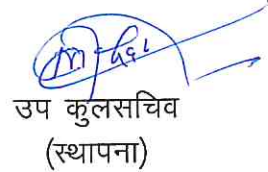 उप कुलसचिव
(स्थापना)